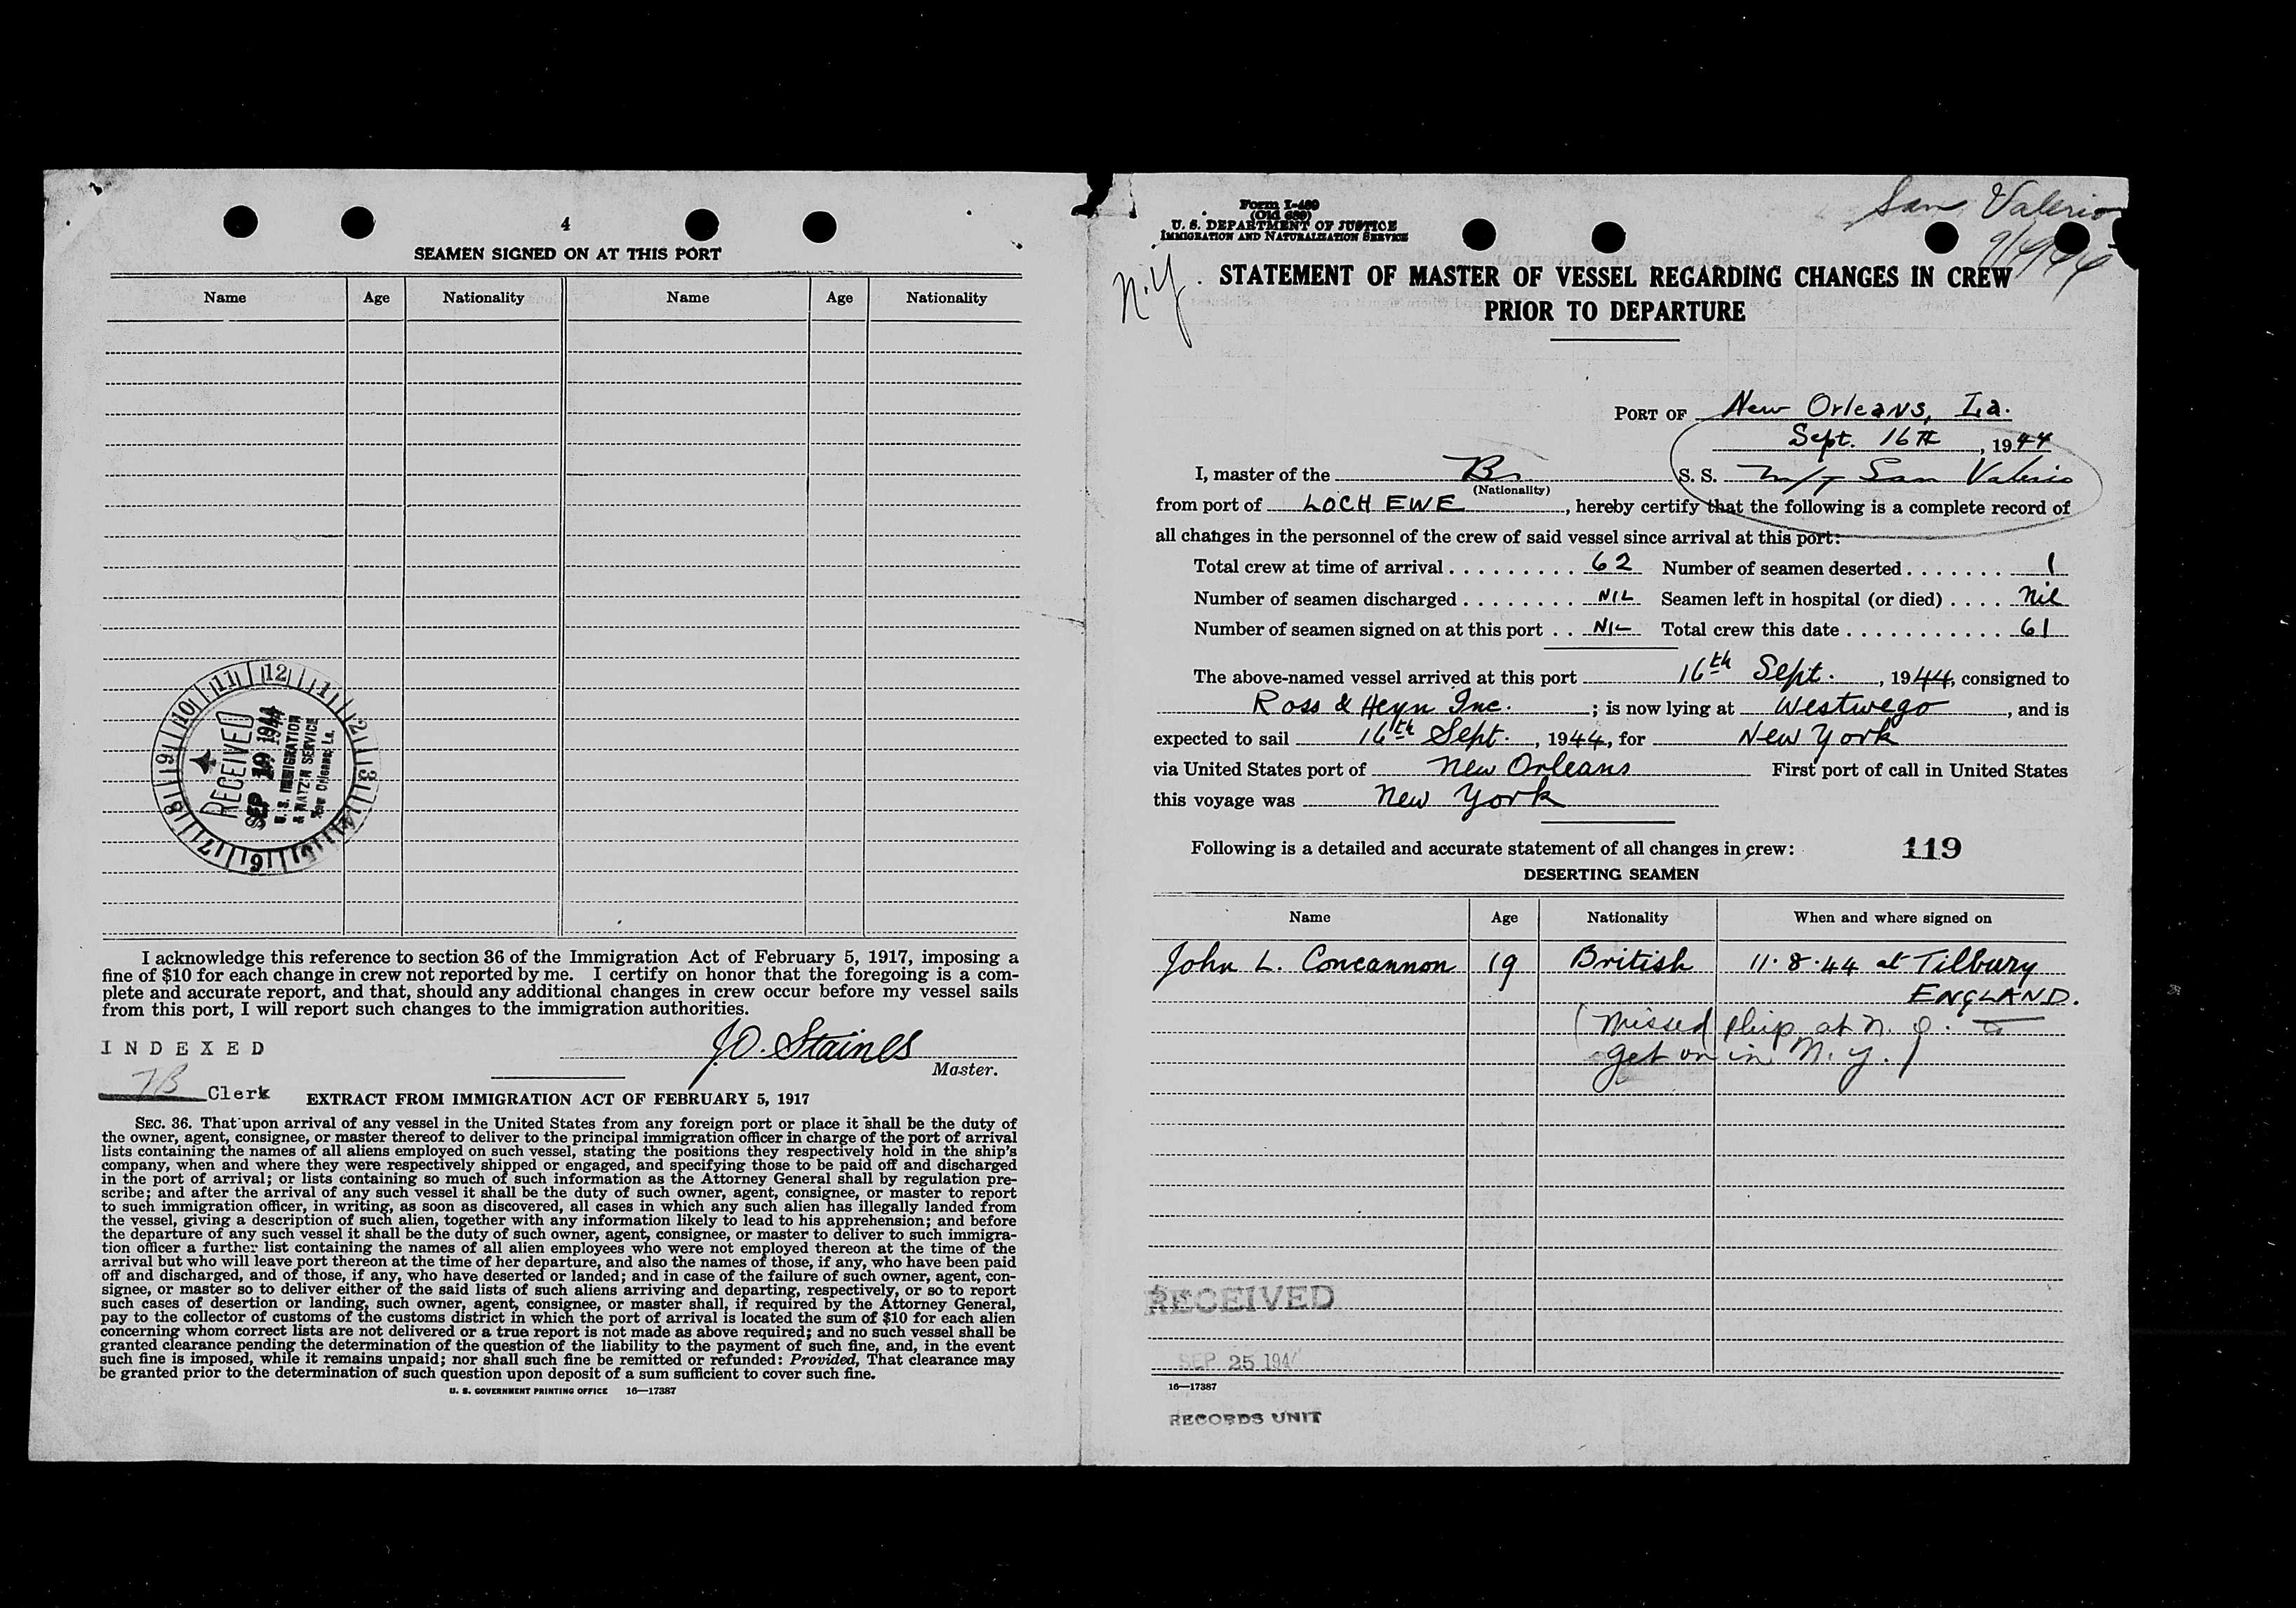 4
SEAMEN SIGNED ON AT THIS PORT
Name Age Nationality Name Age Nationality
12 1 2 3 4 5 6 7 8 9 10 11
RECEIVED
SEP 19 1944
U. S. IMMIGRATION
& NATZ'N SERVICE
New Orleans, La.
I acknowledge this reference to section 36 of the Immigration Act of February 5, 1917, imposing a
fine of $10 for each change in crew not reported by me. I certify on honor that the foregoing is a com-
plete and accurate report, and that, should any additional changes in crew occur before my vessel sails
from this port, I will report such changes to the immigration authorities.
INDEXED
J.O. Staines
Master.
JB Clerk
EXTRACT FROM IMMIGRATION ACT OF FEBRUARY 5, 1917
SEC. 36. That upon arrival of any vessel in the United States from any foreign port or place it shall be the duty of
the owner, agent, consignee, or master thereof to deliver to the principal immigration officer in charge of the port of arrival
lists containing the names of all aliens employed on such vessel, stating the positions they respectively hold in the ship's
company, when and where they were respectively shipped or engaged, and specifying those to be paid off and discharged
in the port of arrival; or lists containing so much of such information as the Attorney General shall by regulation pre-
scribe; and after the arrival of any such vessel it shall be the duty of such owner, agent, consignee, or master to report
to such immigration officer, in writing, as soon as discovered, all cases in which any such alien has illegally landed from
the vessel, giving a description of such alien, together with any information likely to lead to his apprehension; and before
the departure of any such vessel it shall be the duty of such owner, agent, consignee, or master to deliver to such immigra-
tion officer a further list containing the names of all alien employees who were not employed thereon at the time of the
arrival but who will leave port thereon at the time of her departure, and also the names of those, if any, who have been paid
off and discharged, and of those, if any, who have deserted or landed; and in case of the failure of such owner, agent, con-
signee, or master so to deliver either of the said lists of such aliens arriving and departing, respectively, or so to report
such cases of desertion or landing, such owner, agent, consignee, or master shall, if required by the Attorney General,
pay to the collector of customs of the customs district in which the port of arrival is located the sum of $10 for each alien
concerning whom correct lists are not delivered or a true report is not made as above required; and no such vessel shall be
granted clearance pending the determination of the question of the liability to the payment of such fine, and, in the event
such fine is imposed, while it remains unpaid; nor shall such fine be remitted or refunded: Provided, That clearance may
be granted prior to the determination of such question upon deposit of a sum sufficient to cover such fine.
U. S. GOVERNMENT PRINTING OFFICE 16—17387
Form I-489
(Old 689)
U. S. DEPARTMENT OF JUSTICE
IMMIGRATION AND NATURALIZATION SERVICE
San Valerio
N.Y.
STATEMENT OF MASTER OF VESSEL REGARDING CHANGES IN CREW
PRIOR TO DEPARTURE
PORT OF New Orleans, La.
Sept. 16th, 1944
I, master of the Br. S. S. M/T San Valerio
(Nationality)
from port of LOCH EWE, hereby certify that the following is a complete record of
all changes in the personnel of the crew of said vessel since arrival at this port:
Total crew at time of arrival 62 Number of seamen deserted 1
Number of seamen discharged NIL Seamen left in hospital (or died) Nil
Number of seamen signed on at this port NIL Total crew this date 61
The above-named vessel arrived at this port 16th Sept., 1944, consigned to
Ross & Heyn Inc.; is now lying at Westwego, and is
expected to sail 16th Sept., 1944, for New York
via United States port of New Orleans First port of call in United States
this voyage was New York
Following is a detailed and accurate statement of all changes in crew: 119
DESERTING SEAMEN
Name Age Nationality When and where signed on
John L. Concannon 19 British 11.8.44 at Tilbury
ENGLAND.
(Missed ship at N. O. to
get on in N. Y.)
RECEIVED
SEP 25 194
16—17387
RECORDS UNIT